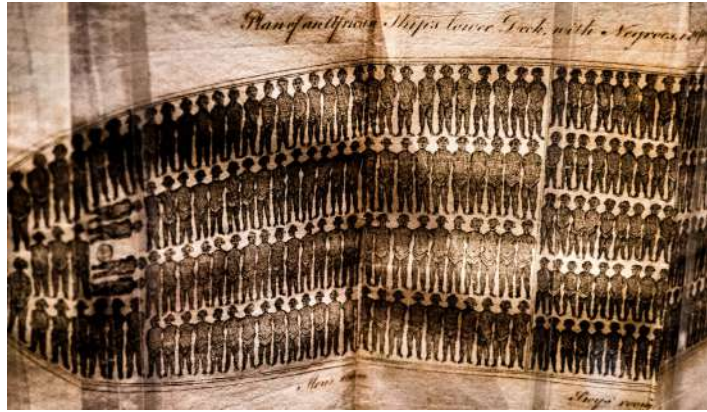 Plan of an African Ship's lower Deck, with Negroes,
Mens room
Boys room